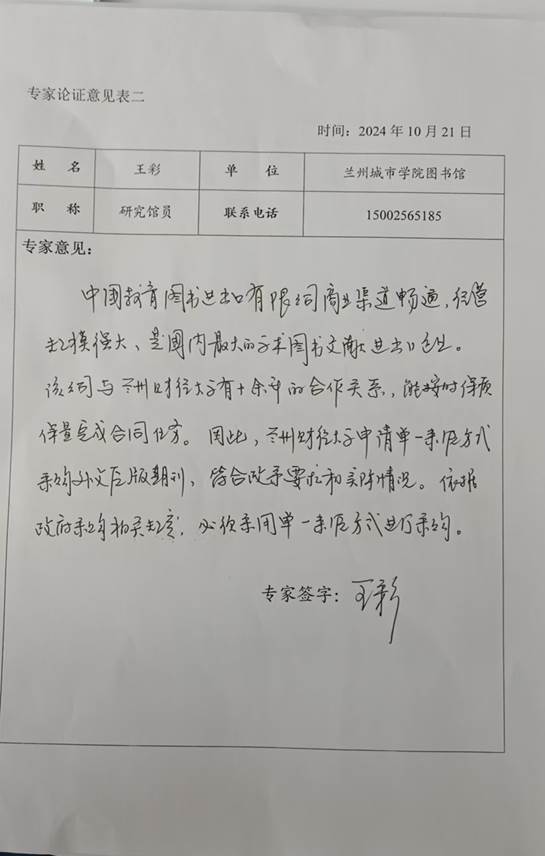 专家论证意见表二
时间：2024 年 10 月 21 日
姓 名 王彩 单 位 兰州城市学院图书馆
职 称 研究馆员 联系电话 15002565185
专家意见：
中国教育图书进出口有限公司商业渠道畅通，经营
规模强大、是国内最大的学术图书文献进出口企业。
该公司与兰州财经大学有十余年的合作关系，能按时保质
保量完成合同任务。因此，兰州财经大学申请单一来源方式
采购外文原版期刊，符合政采要求和实际情况。依据
政府采购相关规定，必须采用单一来源方式进行采购。
专家签字：王彩